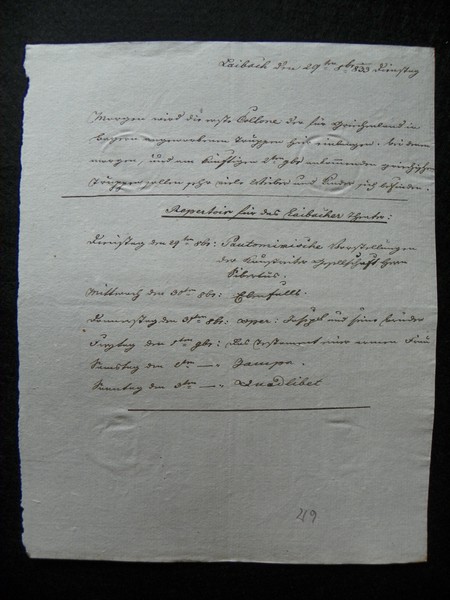 Laibach den 29ten 8br 833 Dienstag
Morgen wird die erste Collone der für Griechenland in
Bayern angeworbenen Truppen hier einlangen. Bei denen
morgen, und am künftigen 2ten 9br ankommenden griechischen
Truppen sollen sehr viele Weiber und Kinder sich befinden.
Repertoir für das Laibacher Theater:
Dienstag den 29ten 8br: Pantomimische Vorstellungen
der Gesellschaft
Mittwoch den 30ten 8br: Ebenfalls.
Donnerstag den 31ten 8br: Oper: Joseph und seine Brüder
Freytag den 1ten 9br: Das Testament einer armen Frau
Samstag den 2ten —„— Zampa.
Sonntag den 3ten —„— Quodlibet
219